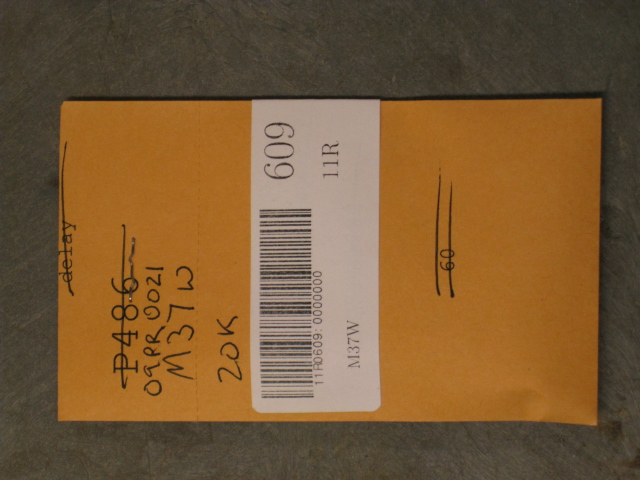 delay
P486
09PR0021
M37W
20K
609
11R
11R0609:0000000
M37W
60